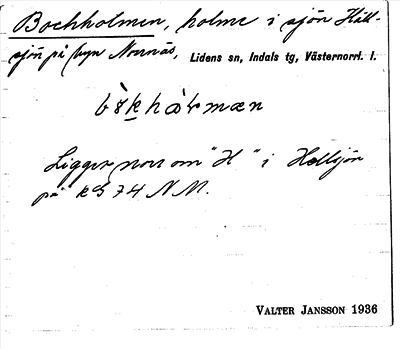 Bockholmen, holme i sjön Häll-
sjön på byn Norrnäs, Lidens sn, Indals tg, Västernorrl. l.
Ligger norr om "H" i Hellsjön
på KS 74 NM.
VALTER JANSSON 1936